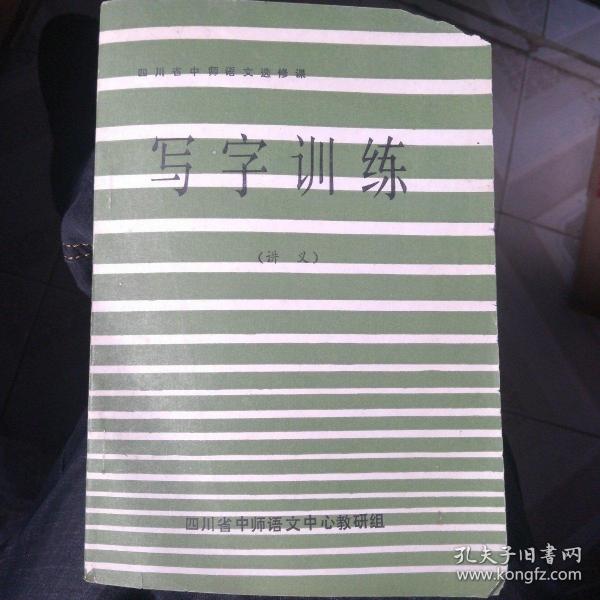 四川省中师语文选修课
写字训练
（讲 义）
四川省中师语文中心教研组
孔夫子旧书网
www.kongfz.com